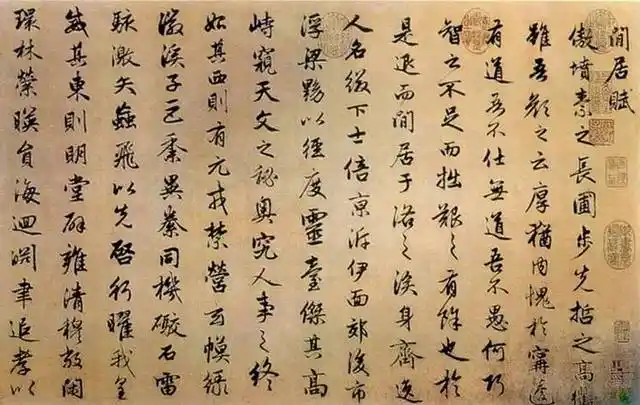 閒居賦
傲墳素之長圃步先哲之高衢
雖吾顏之云厚猶內愧於甯蘧
有道吾不仕無道吾不愚何巧
智之不足而拙艱之有餘也於
是退而閒居于洛之涘身齊逸
人名綴下士倍京泝伊面郊後市
浮梁黝以徑度靈臺傑其高
峙窺天文之秘奧究人事之終
始其西則有元戎禁營玄幙綠
徽溪子巨黍異絭同機礮石雷
駭激矢蝱飛以先啓行曜我皇
威其東則明堂辟雍清穆敞閑
環林縈映員海迴淵聿追孝以